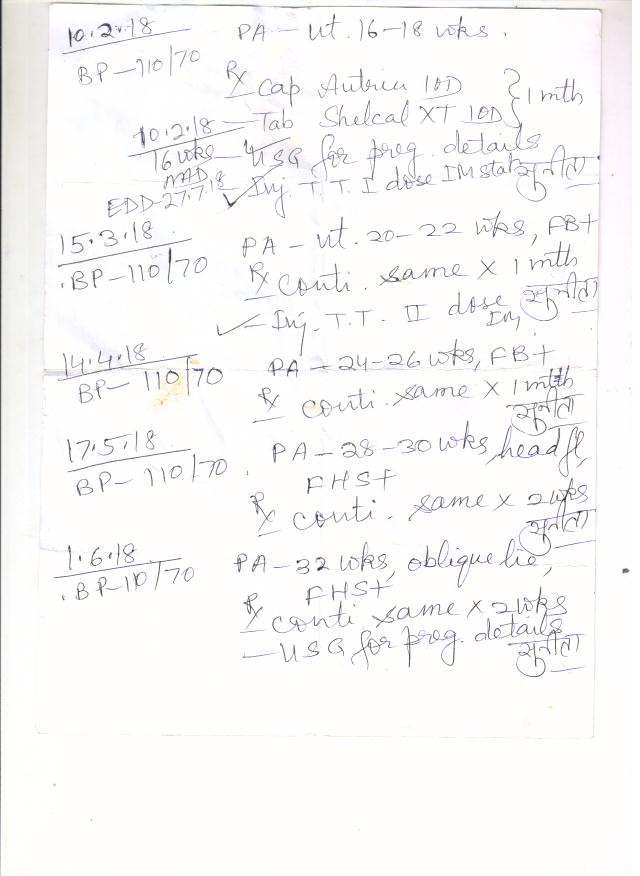 10.2.18 PA - Ut. 16-18 wks.
BP-110/70
Rx Cap Autrin 10D } 1 mth
- Tab Shelcal XT 10D
10.2.18
16 wks - USG for preg. details
NAD
EDD-27.7.18 ✓ Inj. T.T. I dose IM stat सुनीता
15.3.18 PA - Ut. 20-22 wks, FB+
BP-110/70 Rx conti. same x 1 mth
✓ - Inj. T.T. II dose IM सुनीता
14.4.18 PA - 24-26 wks, FB+
BP-110/70 Rx conti. same x 1 mth
सुनीता
17.5.18 PA - 28-30 wks, head fl,
BP-110/70 FHS+
Rx conti. same x 2 wks
सुनीता
1.6.18 PA - 32 wks, oblique lie,
BP-110/70 FHS+
Rx conti same x 2 wks
- USG for preg. details
सुनीता